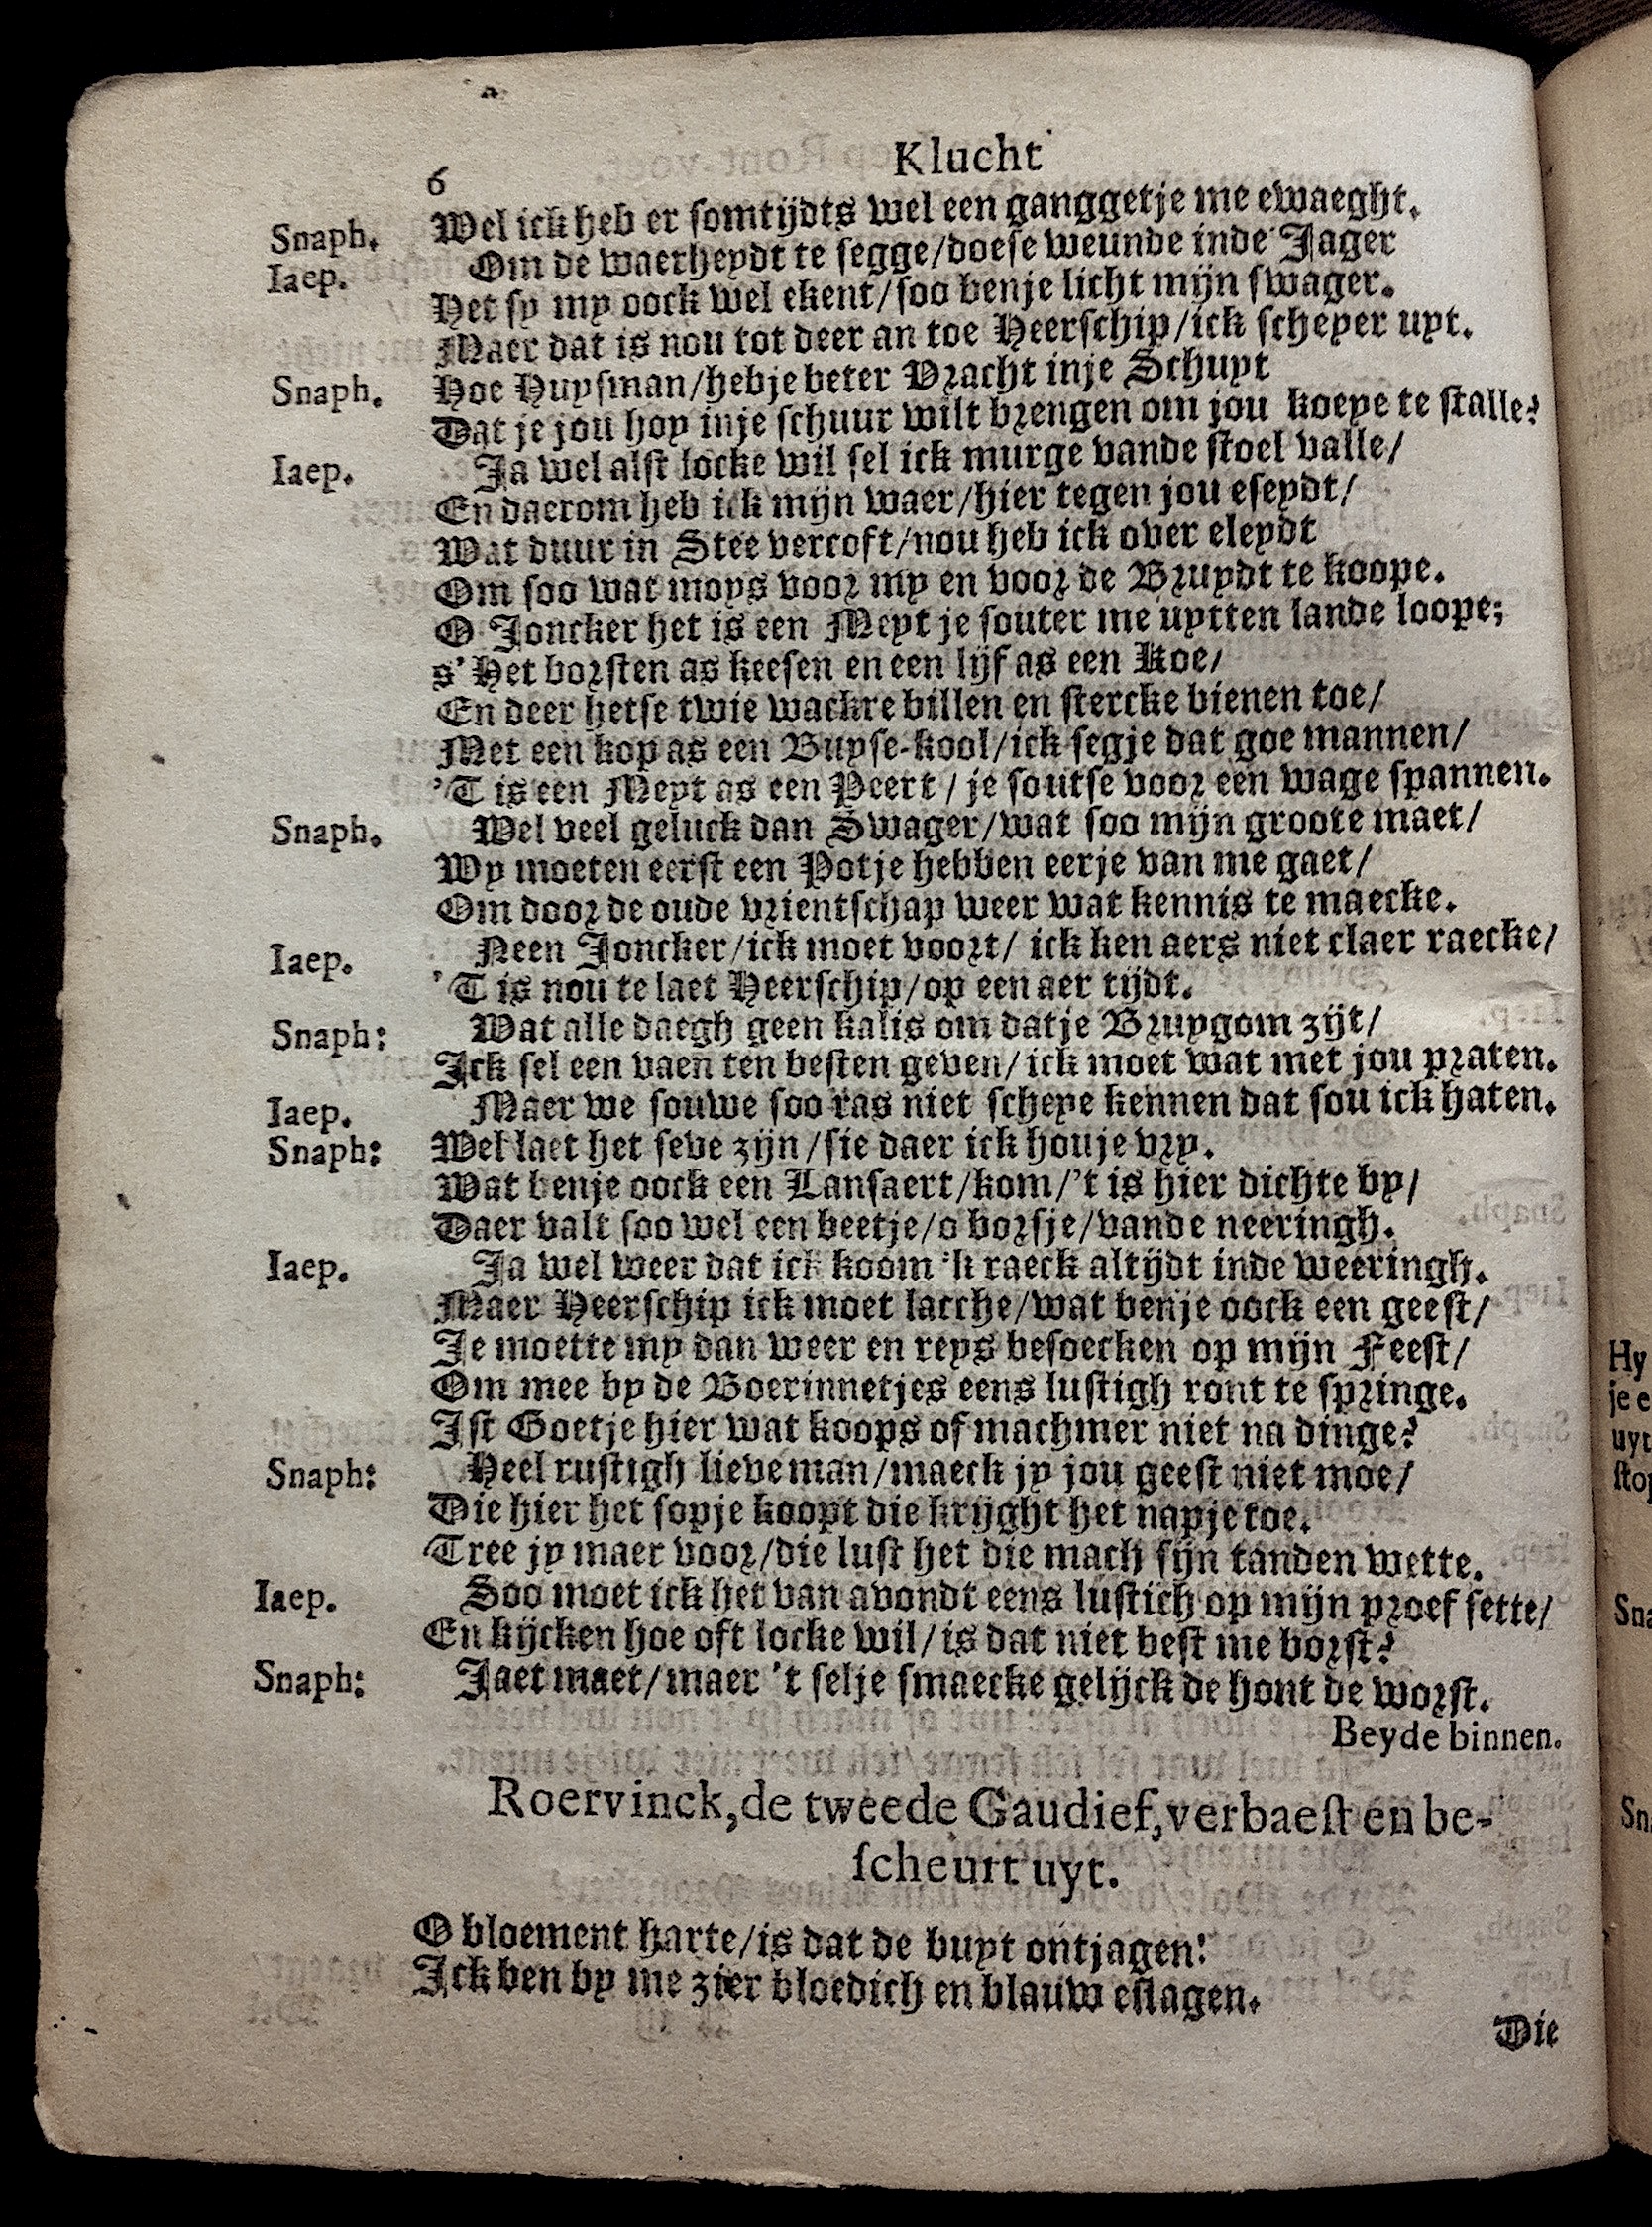 Klucht
6
Snaph. Wel ick heb er somtijdts wel een ganggetje me ewaeght.
Iaep. Om de waerheydt te segge/doese weunde inde Jager
Het sy my oock wel ekent/soo benje licht mijn swager.
Maer dat is nou tot deer an toe Heerschip/ick scheyer uyt.
Snaph. Hoe Huysman/hebje beter Vracht inje Schuyt
Dat je jou hoy inje schuur wilt brengen om jou koeye te stalle?
Iaep. Ja wel alst locke wil sel ick murge vande stoel valle/
En daerom heb ick mijn waer/hier tegen jou eseydt/
Wat duur in Stee vercoft/nou heb ick over eleydt
Om soo wat moys voor my en voor de Bruydt te koope.
O Joncker het is een Meyt je souter me uytten lande loope;
s'Het borsten as keesen en een lijf as een Koe/
En deer hetse twie wackre billen en stercke bienen toe/
Met een kop as een Buyse-kool/ick segje dat goe mannen/
'T is een Meyt as een Peert/je soutse voor een wage spannen.
Snaph. Wel veel geluck dan Swager/wat soo mijn groote maet/
Wy moeten eerst een Potje hebben eerje van me gaet/
Om door de oude vrientschap weer wat kennis te maecke.
Iaep. Neen Joncker/ick moet voort/ick ken aers niet claer raecke/
'T is nou te laet Heerschip/op een aer tijdt.
Snaph: Wat alle daegh geen kalis om datje Bruygom zijt/
Ick sel een vaen ten besten geven/ick moet wat met jou praten.
Iaep. Maer we souwe soo ras niet scheye kennen dat sou ick haten.
Snaph: Wel laet het seve zijn/sie daer ick houje vry.
Wat benje oock een Lansaert/kom/'t is hier dichte by/
Daer valt soo wel een beetje/o borsje/vande neeringh.
Iaep. Ja wel weer dat ick koom 'k raeck altijdt inde weeringh.
Maer Heerschip ick moet lacche/wat benje oock een geest/
Je moette my dan weer en reys besoecken op mijn Feest/
Om mee by de Boerinnetjes eens lustigh ront te springe.
Ist Goetje hier wat koops of machmer niet na dinge?
Snaph: Heel rustigh lieve man/maeck jy jou geest niet moe/
Die hier het sopje koopt die krijght het napje toe.
Tree jy maer voor/die lust het die mach sijn tanden wette.
Iaep. Soo moet ick het van avondt eens lustich op mijn proef sette/
En kijcken hoe oft locke wil/is dat niet best me borst?
Snaph: Jaet maet/maer 't selje smaecke gelijck de hont de worst.
Beyde binnen.
Roervinck, de tweede Gaudief, verbaest en be-
scheurt uyt.
O bloement harte/is dat de buyt ontjagen!
Ick ben by me zier bloedich en blauw eslagen.
Die
Hy
je e
uyt
stop
Sna
Sn